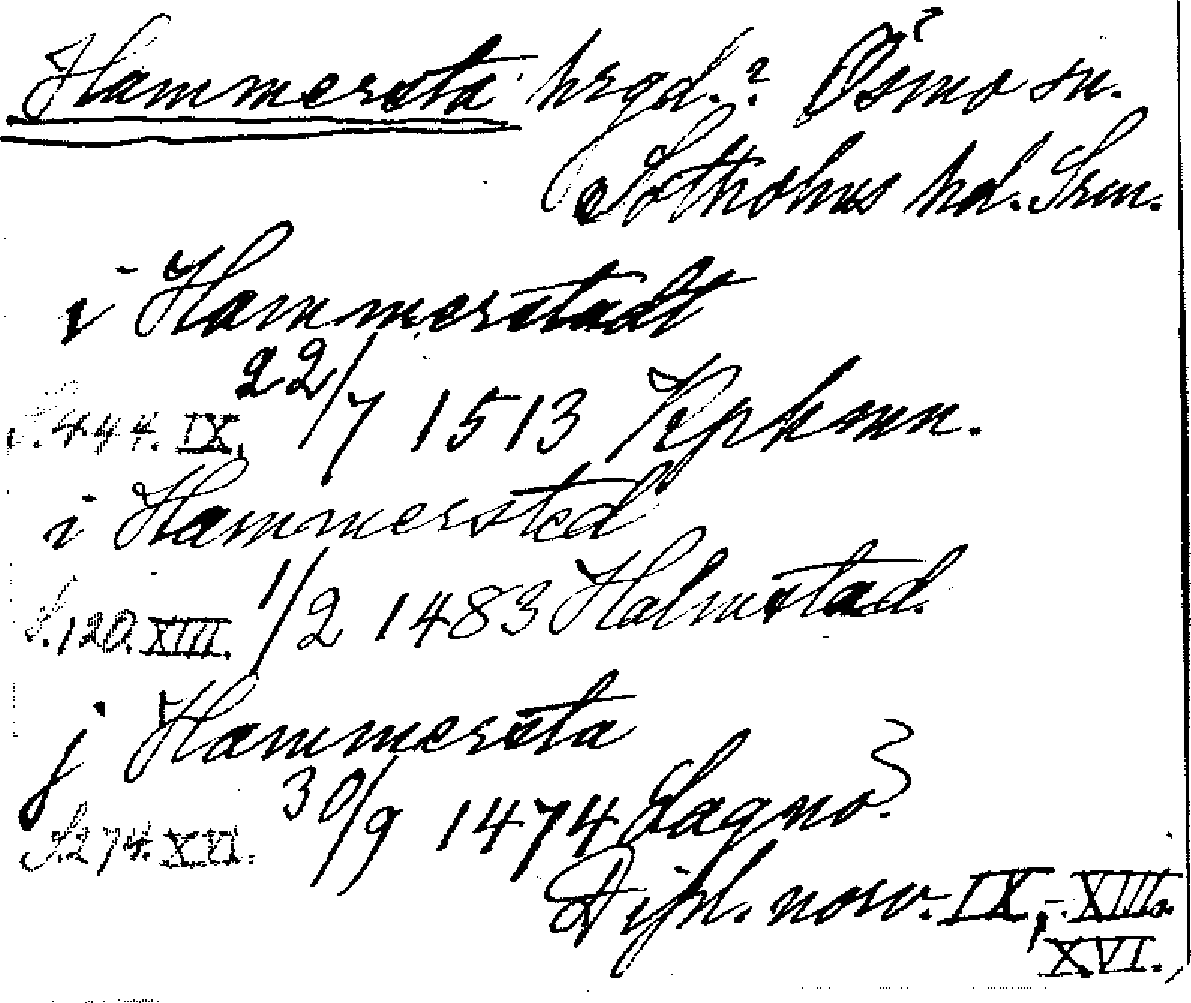 Hammersta hrgd.? Ösmo sn.
Sotholms hd. Srm.
i Hammerstadt
S. 444. IX. 22/7 1513 Kphmn.
i Hammersted
S. 120. XIII. 1/2 1483 Halmstad.
j Hammersta
S. 274. XVI. 30/9 1474 Lagnö.
Dipl. norv. IX, XIII.
XVI.